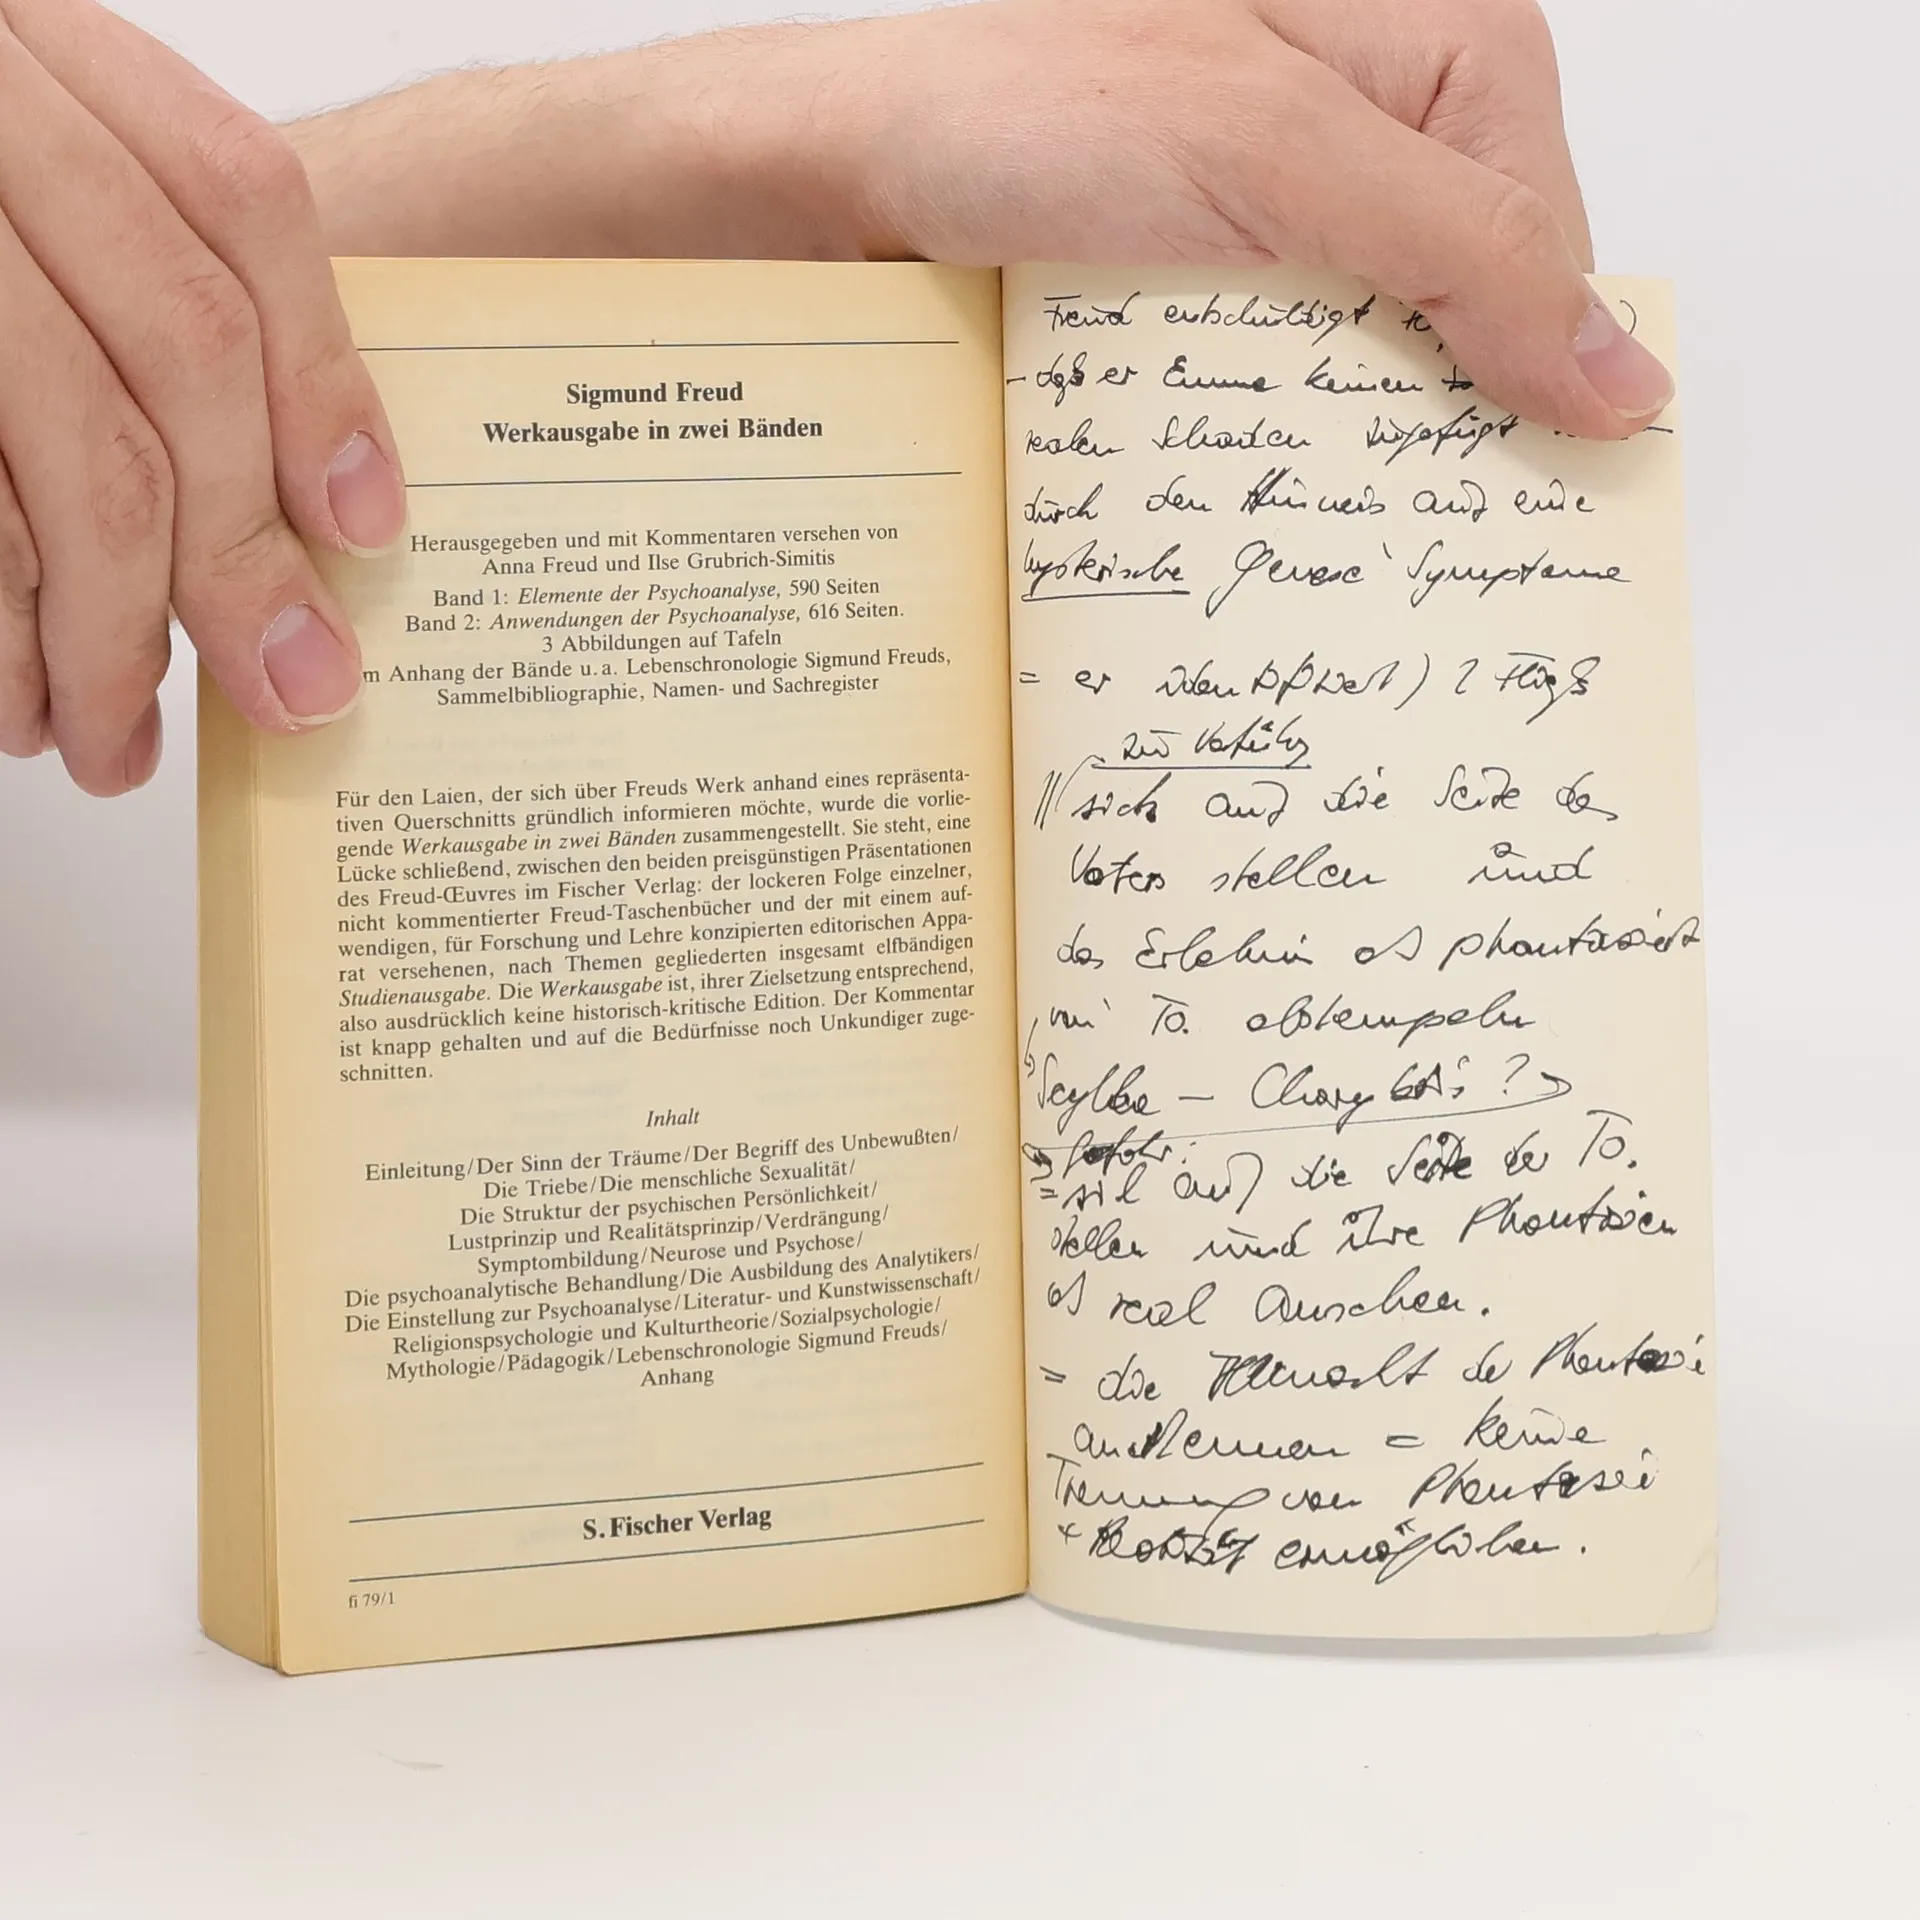 Sigmund Freud
Werkausgabe in zwei Bänden
Herausgegeben und mit Kommentaren versehen von
Anna Freud und Ilse Grubrich-Simitis
Band 1: Elemente der Psychoanalyse, 590 Seiten
Band 2: Anwendungen der Psychoanalyse, 616 Seiten.
3 Abbildungen auf Tafeln
m Anhang der Bände u. a. Lebenschronologie Sigmund Freuds,
Sammelbibliographie, Namen- und Sachregister
Für den Laien, der sich über Freuds Werk anhand eines repräsenta-
tiven Querschnitts gründlich informieren möchte, wurde die vorlie-
gende Werkausgabe in zwei Bänden zusammengestellt. Sie steht, eine
Lücke schließend, zwischen den beiden preisgünstigen Präsentationen
des Freud-Œuvres im Fischer Verlag: der lockeren Folge einzelner,
nicht kommentierter Freud-Taschenbücher und der mit einem auf-
wendigen, für Forschung und Lehre konzipierten editorischen Appa-
rat versehenen, nach Themen gegliederten insgesamt elfbändigen
Studienausgabe. Die Werkausgabe ist, ihrer Zielsetzung entsprechend,
also ausdrücklich keine historisch-kritische Edition. Der Kommentar
ist knapp gehalten und auf die Bedürfnisse noch Unkundiger zuge-
schnitten.
Inhalt
Einleitung/Der Sinn der Träume/Der Begriff des Unbewußten/
Die Triebe/Die menschliche Sexualität/
Die Struktur der psychischen Persönlichkeit/
Lustprinzip und Realitätsprinzip/Verdrängung/
Symptombildung/Neurose und Psychose/
Die psychoanalytische Behandlung/Die Ausbildung des Analytikers/
Die Einstellung zur Psychoanalyse/Literatur- und Kunstwissenschaft/
Religionspsychologie und Kulturtheorie/Sozialpsychologie/
Mythologie/Pädagogik/Lebenschronologie Sigmund Freuds/
Anhang
S. Fischer Verlag
fi 79/1
Freud entschuldigt
– daß er Emma keinen
realen Schaden zugefügt
durch den Hinweis auf eine
hysterische Genese Symptome
= er
zur
sich auf die Seite des
Vaters stellen und
das Erlebnis als phantasiert
von To. abstempeln
Scylla – Charybdis ?
Gefahr:
= sich auf die Seite der To.
stellen und ihre Phantasien
als real ansehen.
= die Allmacht der Phantasie
anerkennen = keine
Trennung von Phantasie
+ Realität ermöglichen.